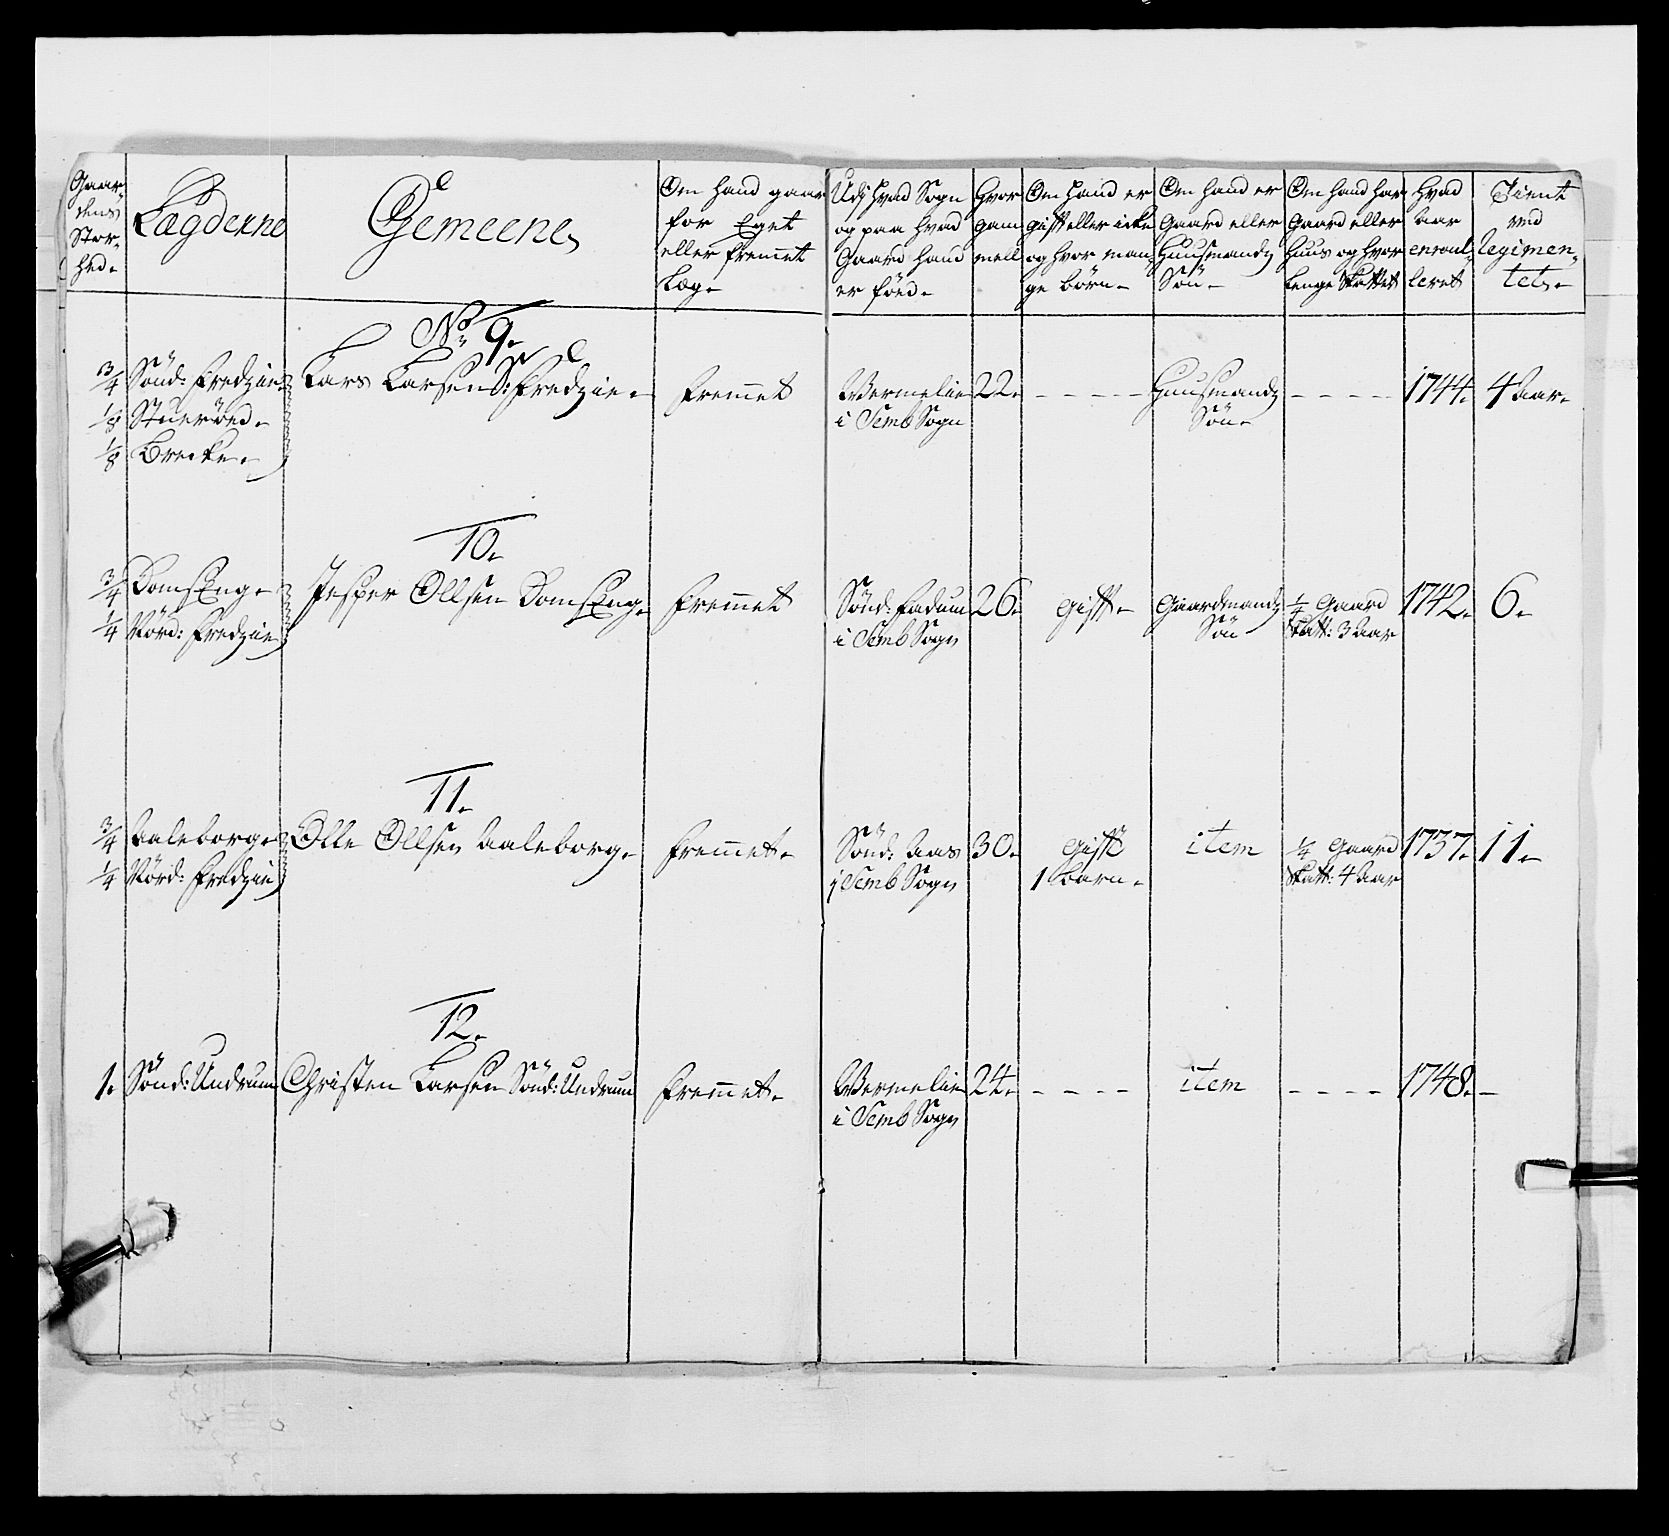 Gaar-
dens
Stor-
hed.
Lægderne
Gemeene
Om hand gaar
for Eget
eller fremmet
Læg.
Udj hvad Sogn
og paa hvad
Gaard hand
er föed.
Hvor
gam
mell
Om hand er
gift eller icke
og hvor man-
ge börn.
Om hand er
Gaard eller
Huusmands
Sön.
Om hand har
Gaard eller
Huus og hvor
lenge Skattet
Hvad
aar
enroul-
leret
Tient
ved
Regimen-
tet.
No 9.
3/4 Sönd: Fredzie
1/8 Stuerönd.
1/8 Brecke.
Lars Larsen S: Fredzie.
fremmet
Wermelie
i Semb Sogn
22.
- - - - -
Huusmands
Sön.
- - - - -
1744.
4 Aar.
10.
3/4 DomsEng.
1/4 Nörd: Fredzie
Jesper Ollsen DomsEng.
fremmet
Sönd: Fadum
i Semb Sogn
26.
gift.
Gaardmands
Sön
1/4 Gaard
Skatt: 3 Aar
1742.
6.
11.
3/4 Aaleborg.
1/4 Nörd: Fredzie
Olle Ollsen Aaleborg.
fremmet.
Sönd: Aas
j Semb Sogn
30.
gift
1 barn.
item
1/4 Gaard
Skatt: 4 Aar
1737.
11.
12.
1. Sönd: Undrum
Christen Larsen Sönd: Undrum
fremmet.
Wermelie
i Semb Sogn
24.
- - - -
item
- - - -
1748.
-